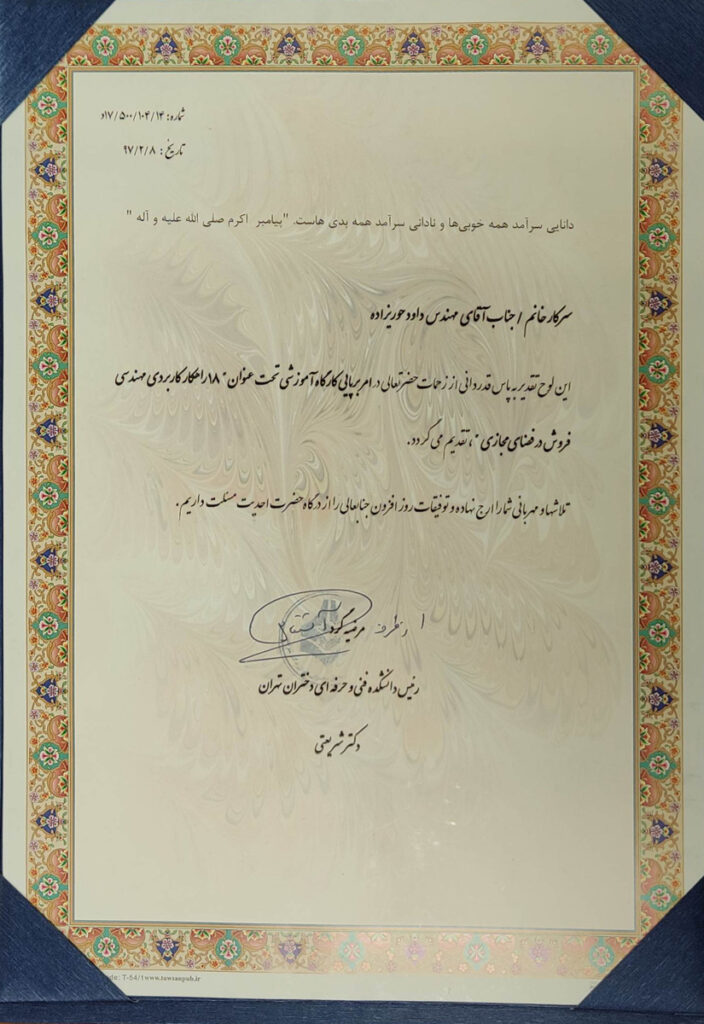 شماره: ۱۷/۵۰۰/۱۰۴/۱۴د
تاریخ: ۹۷/۲/۸
دانایی سرآمد همه خوبی‌ها و نادانی سرآمد همه بدی هاست. "پیامبر اکرم صلی الله علیه و آله "
سرکار خانم / جناب آقای مهندس داود حوریزاده
این لوح تقدیر به پاس قدردانی از زحمات حضرتعالی در امر برپایی کارگاه آموزشی تحت عنوان "۱۸ راهکار کاربردی مهندسی
فروش در فضای مجازی "، تقدیم می گردد.
تلاشها و مهربانی شما را ارج نهاده و توفیقات روز افزون جنابعالی را از درگاه حضرت احدیت مسئلت داریم.
از طرف مرضیه گودآ
رئیس دانشکده فنی و حرفه ای دختران تهران
دکتر شریعتی
de: T-54/1www.tawsanpub.ir